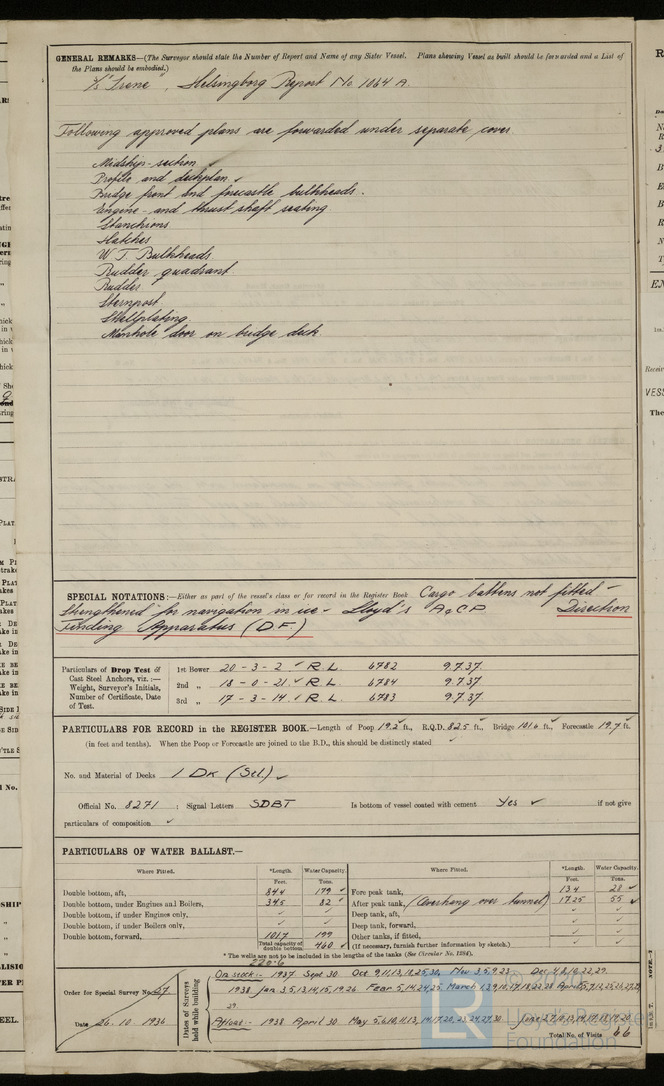 GENERAL REMARKS—(The Surveyor should state the Number of Report and Name of any Sister Vessel. Plans shewing Vessel as built should be forwarded and a List of
the Plans should be embodied.)
S/S "Irene", Helsingborg Report No 1064 A.
Following approved plans are forwarded under separate cover
Midship-section ✓
Profile and deckplan ✓
Bridge front and forecastle bulkheads.
Engine- and thrust shaft seating
Stanchions
Hatches
W.T. Bulkheads
Rudder quadrant
Rudder
Sternpost
Shellplating
Manhole door on bridge deck
SPECIAL NOTATIONS:—Either as part of the vessel's class or for record in the Register Book Cargo battens not fitted -
Strengthened for navigation in ice - Lloyd's A & C P Direction
Finding Apparatus (D F)
Particulars of Drop Test of
Cast Steel Anchors, viz.:—
Weight, Surveyor's Initials,
Number of Certificate, Date
of Test.
1st Bower 20 - 3 - 2 ✓ R. L. 6782 9.7.37
2nd „ 18 - 0 - 21 ✓ R. L. 6784 9.7.37
3rd „ 17 - 3 - 14 ✓ R. L. 6783 9.7.37
PARTICULARS FOR RECORD in the REGISTER BOOK.—Length of Poop 19.2 ft., R.Q.D. 82.5 ft., Bridge 101.6 ft., Forecastle 19.7 ft.
(in feet and tenths). When the Poop or Forecastle are joined to the B.D., this should be distinctly stated ✓
No. and Material of Decks 1 Dk (Stl) ✓
Official No. 8271 ; Signal Letters SDBT Is bottom of vessel coated with cement Yes ✓ if not give
particulars of composition ✓
PARTICULARS OF WATER BALLAST.—
Where Fitted. *Length. Water Capacity. Where Fitted. *Length. Water Capacity.
Feet. Tons. Feet. Tons.
Double bottom, aft, 84.4 179 ✓ Fore peak tank, 13.4 28 ✓
Double bottom, under Engines and Boilers, 34.5 82 ✓ After peak tank, (Overhang over tunnel) 17.25 55 ✓
Double bottom, if under Engines only, ✓ ✓ Deep tank, aft, ✓ ✓
Double bottom, if under Boilers only, ✓ ✓ Deep tank, forward, ✓ ✓
Double bottom, forward, 101.7 199 Other tanks, if fitted, ✓ ✓
Total capacity of double bottom 460 ✓ (If necessary, furnish further information by sketch.)
* The wells are not to be included in the lengths of the tanks (See Circular No. 1284).
220.6
Order for Special Survey No. 47
Date 26. 10. 1936
Dates of Surveys
held while building
On stock:- 1937 Sept 30 Oct. 9,11,13,18,25,30, Nov 3,5,9,23 Dec 4,8,16,22,29.
1938 Jan 3,5,13,14,15,19,26 Febr 5,14,24,25 March 1,3,9,10,17,18,22,28
29.
Afloat:- 1938 April 30 May 5,6,10,11,13,14,17,20,23,24,27,30
Total No. of Visits 66
© Lloyd's Register
Foundation